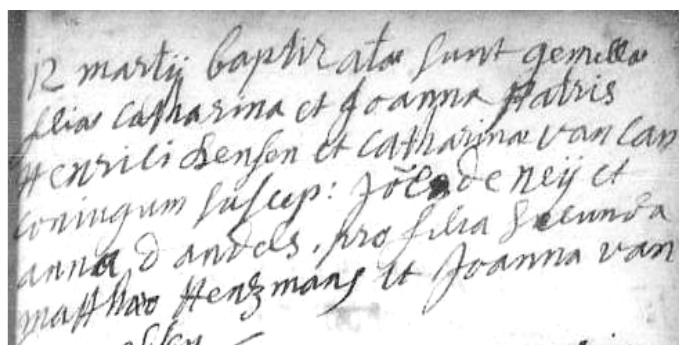 12 martij baptizatæ sunt gemellæ
filiæ Catharina et Joanna Patris
Henrici Sensen et Catharinæ van Can
coniugum suscep: Joes de Neij et
anna d andels. pro filia secunda
matthæo Henzmans et Joanna van